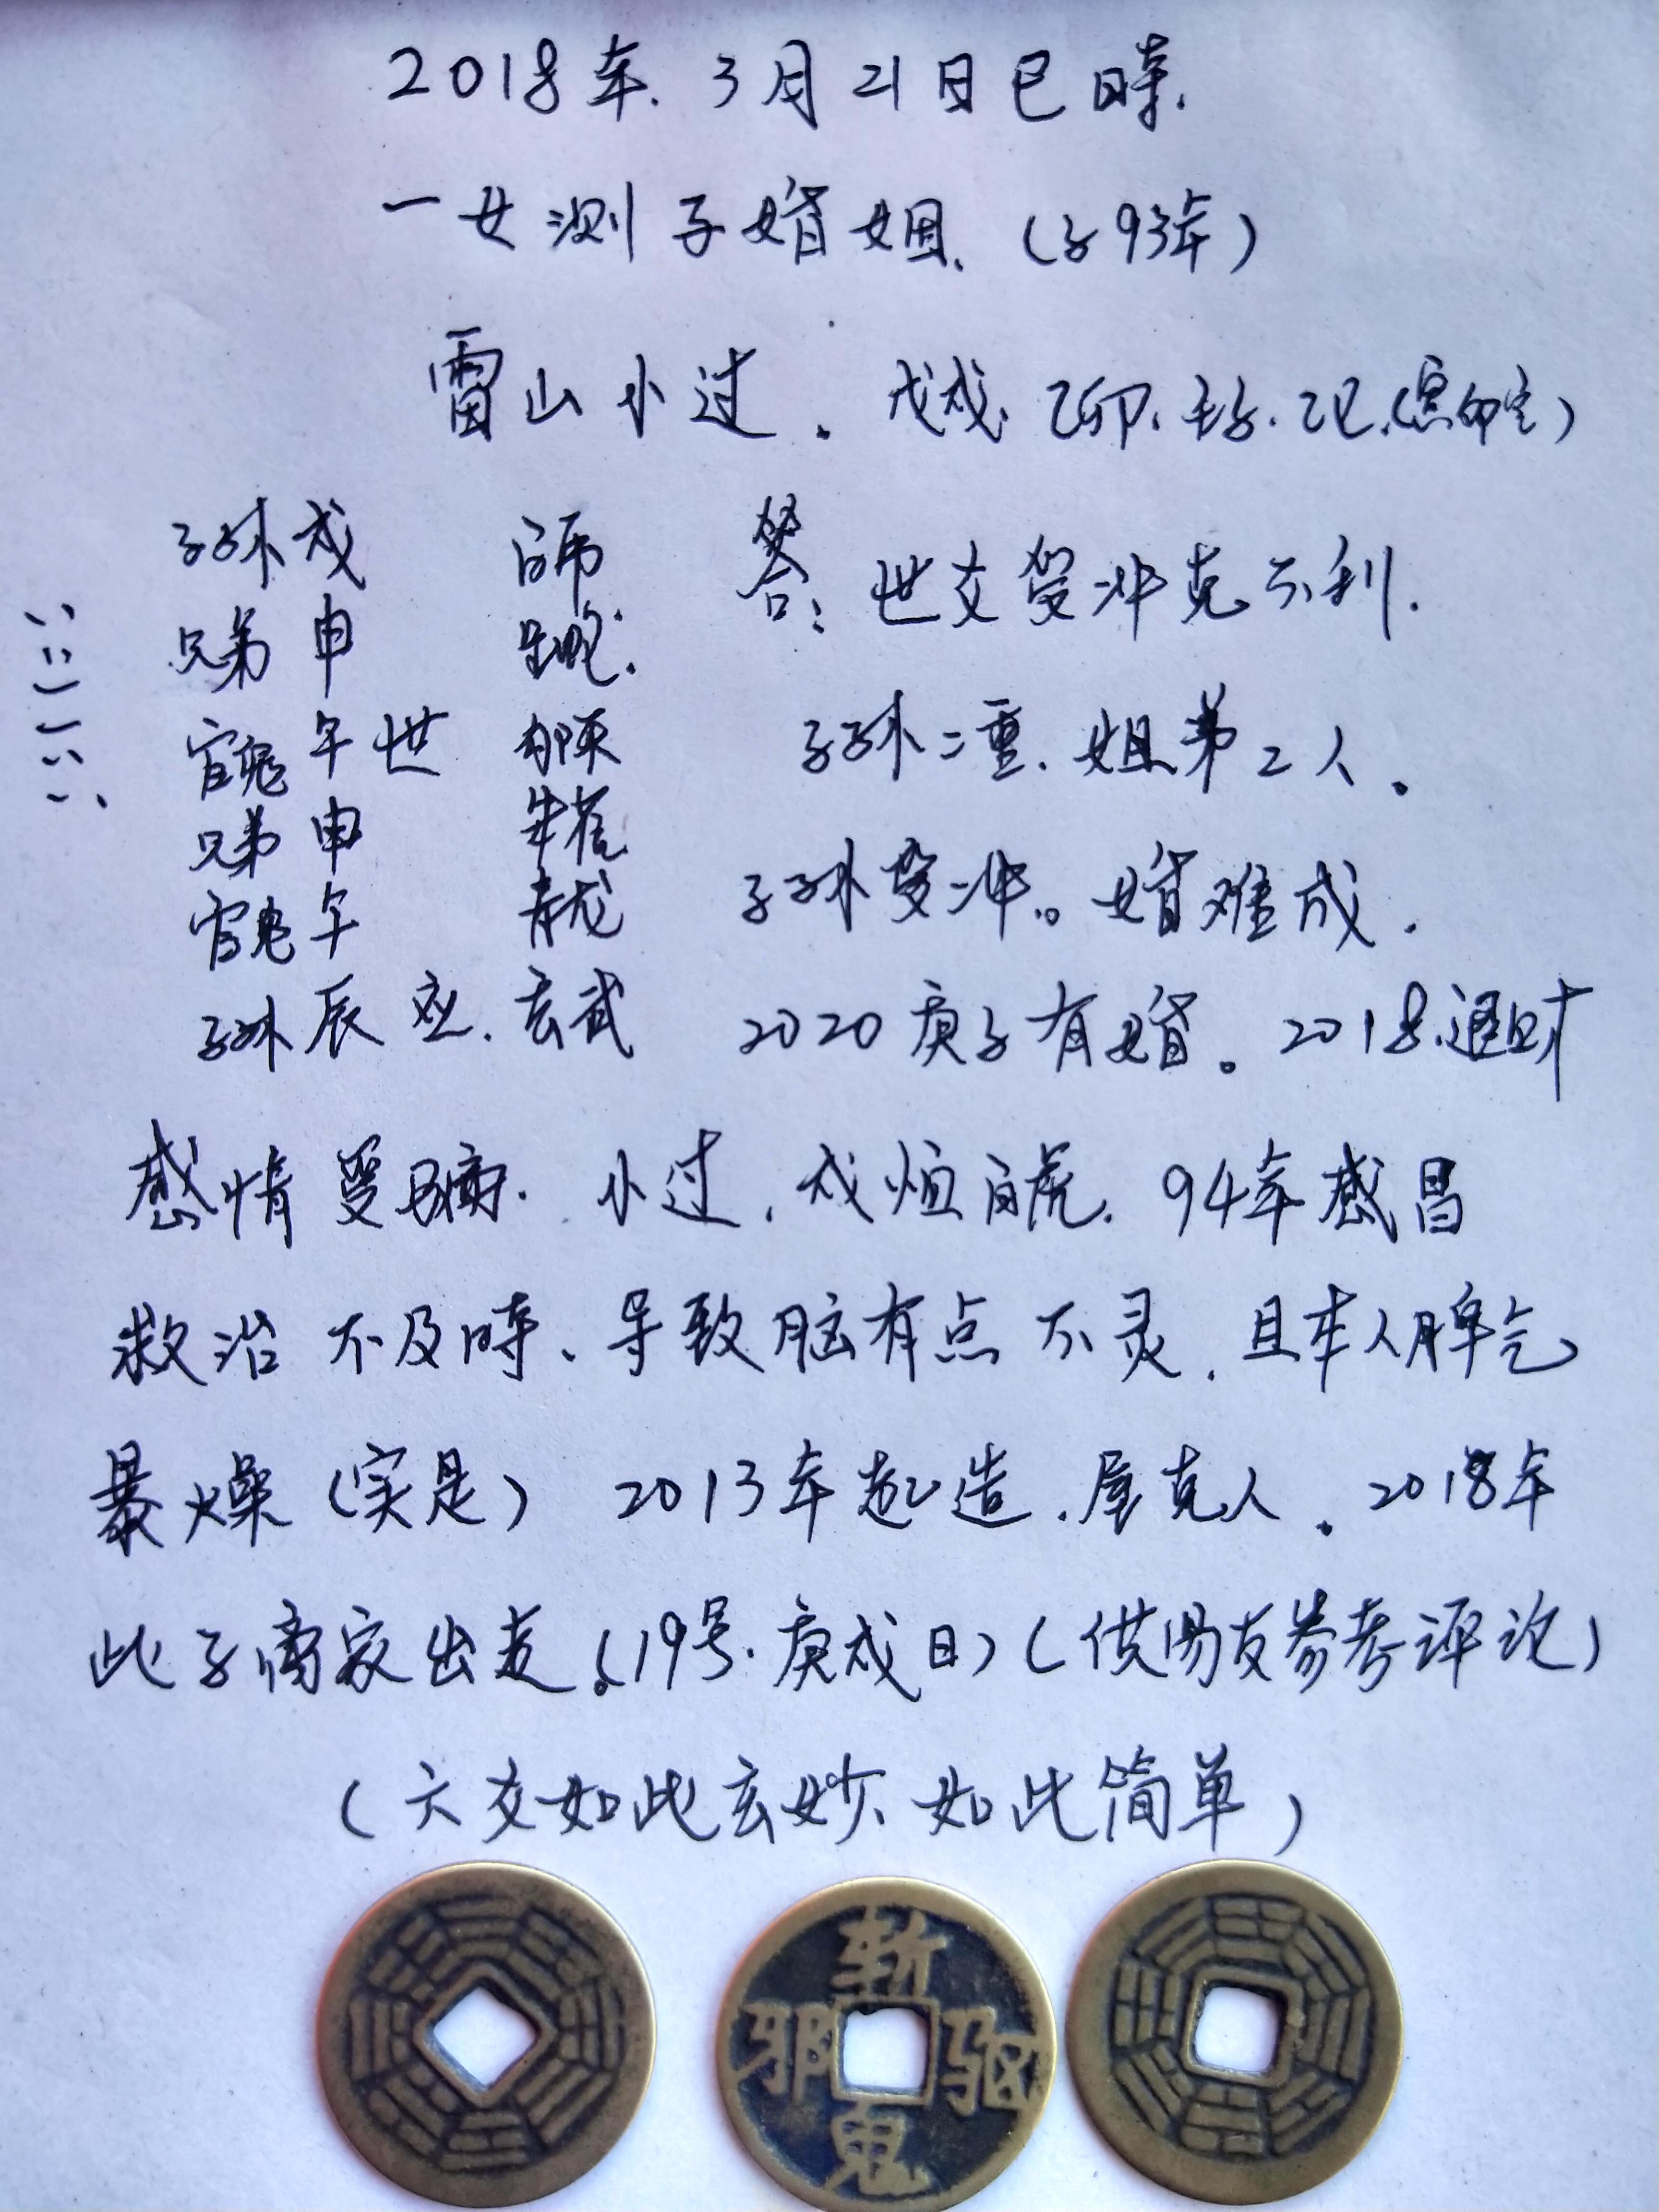 2018年.3月21日巳时.
一女测子婚姻.(子93年)
雷山小过. 戊戌.乙卯.壬子.乙巳.(寅卯空)
子孙戌 白虎 答:世爻受冲克不利.
兄弟申 生蛇.
官鬼午世 勾陈 子孙二重.姐弟2人.
兄弟申 朱雀
官鬼午 青龙 子孙受冲。婚难成.
子孙辰应.玄武 2020庚子有婚。2018.遇财
感情受骗.小过.戌烜白虎.94年感昌
救治不及时、导致脑有点不灵.且本人脾气
暴燥(实是) 2013年起造.屋克人.2018年
此子离家出走.(19号.庚戌日)(供易友参考评论)
(六爻如此玄妙、如此简单)
斩
邪 驱
鬼